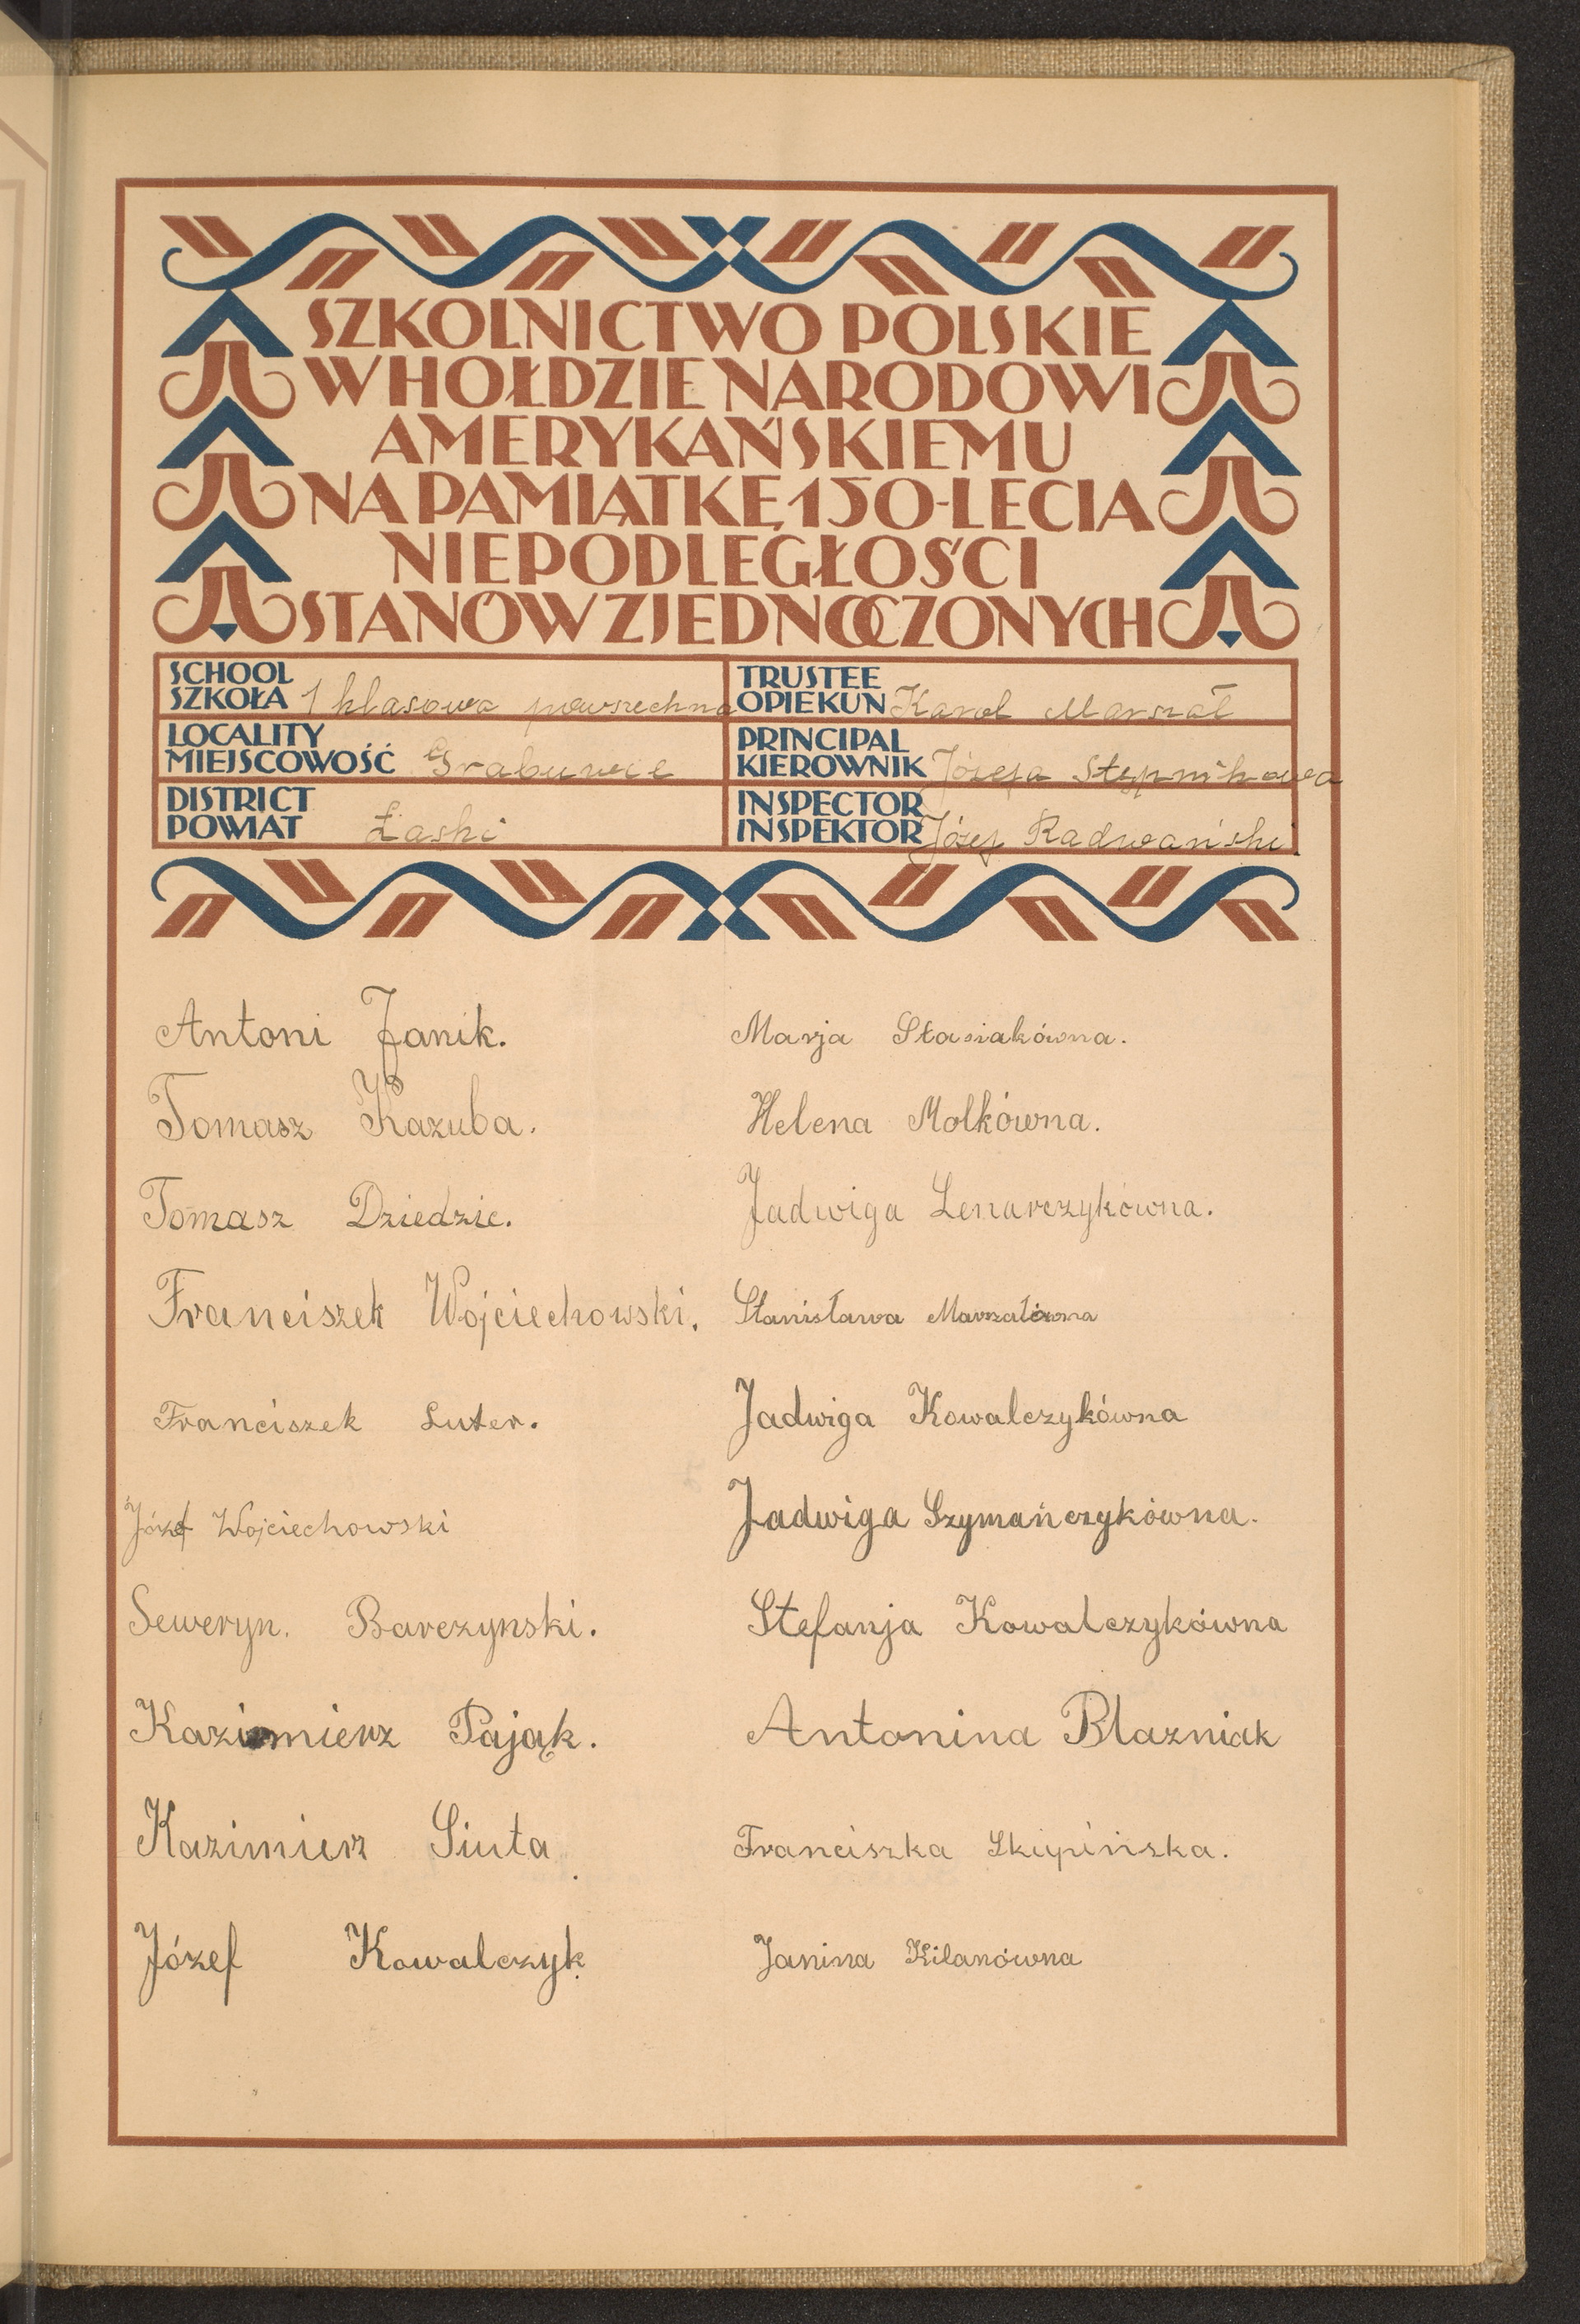 SZKOLNICTWO POLSKIE
W HOŁDZIE NARODOWI
AMERYKAŃSKIEMU
NA PAMIĄTKĘ 150-LECIA
NIEPODLEGŁOŚCI
STANÓW ZJEDNOCZONYCH
SCHOOL
SZKOŁA 1 klasowa powszechna
TRUSTEE
OPIEKUN Karol Marszał
LOCALITY
MIEJSCOWOŚĆ Grabuwie
PRINCIPAL
KIEROWNIK Józefa Stępnikowa
DISTRICT
POWIAT Łaski
INSPECTOR
INSPEKTOR Józef Radwański
Antoni Janik.
Tomasz Kazuba.
Tomasz Dziedzic.
Franciszek Wojciechowski.
Franciszek Luter.
Józef Wojciechowski
Seweryn. Barczynski.
Kazimierz Pająk.
Kazimierz Siuta.
Józef Kowalczyk.
Marja Stasiakówna.
Helena Molkówna.
Jadwiga Lenarczykówna.
Stanisława Marszałówna
Jadwiga Kowalczykówna
Jadwiga Szymańczykówna.
Stefanja Kowalczykówna
Antonina Blazniak
Franciszka Skupińska.
Janina Kilanówna